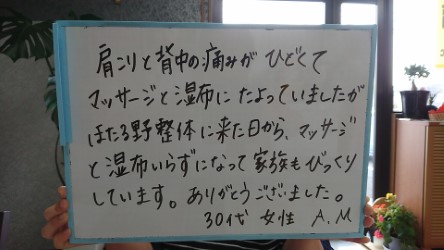 肩こりと背中の痛みが ひどくて
マッサージと湿布に たよっていましたが
ほたる野整体に来た日から、マッサージ
と湿布いらずになって 家族もびっくり
しています。ありがとうございました。
30代 女性 A.M